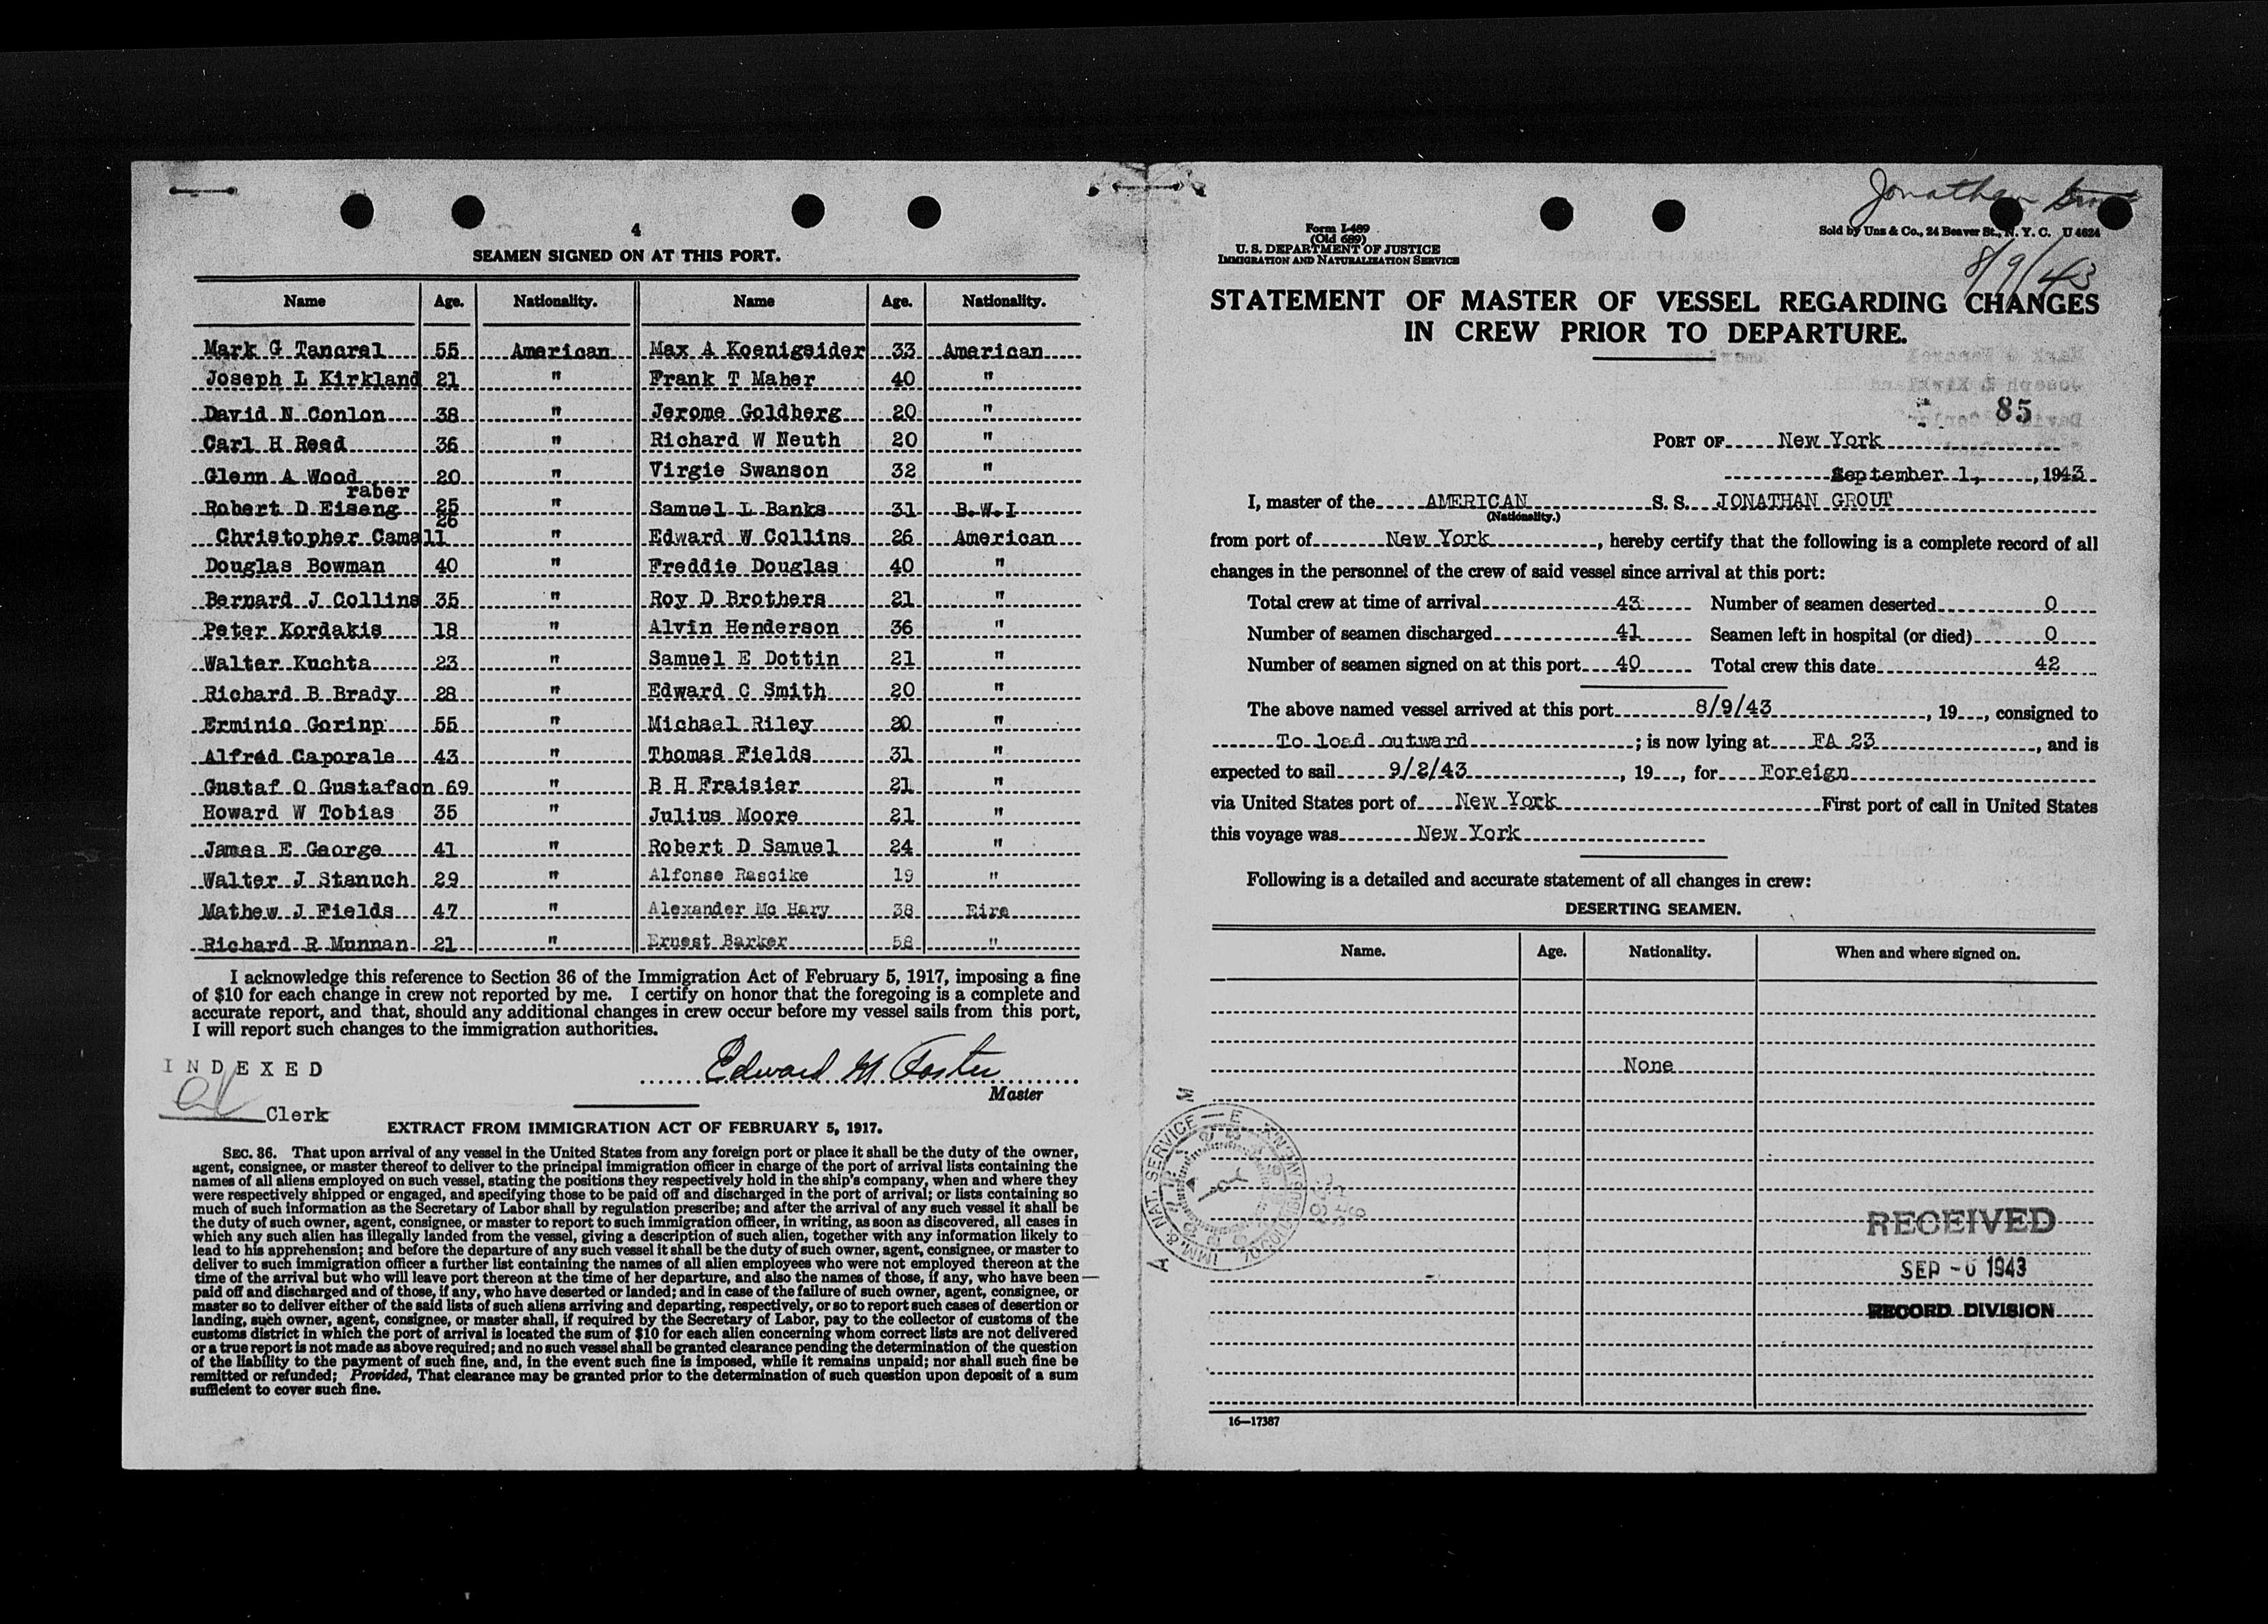 4
SEAMEN SIGNED ON AT THIS PORT.
Name Age. Nationality. Name Age. Nationality.
Mark G Tancrel 55 American Max A Koenigsider 33 American
Joseph L Kirkland 21 " Frank T Maher 40 "
David N Conlon 38 " Jerome Goldberg 20 "
Carl H Reed 36 " Richard W Neuth 20 "
Glenn A Wood 20 " Virgie Swanson 32 "
raber
Robert D Eiseng 25 " Samuel L Banks 31 B.W.I
26
Christopher Camall " Edward W Collins 26 American
Douglas Bowman 40 " Freddie Douglas 40 "
Bernard J Collins 35 " Roy D Brothers 21 "
Peter Kordakis 18 " Alvin Henderson 36 "
Walter Kuchta 23 " Samuel E Dottin 21 "
Richard B Brady 28 " Edward C Smith 20 "
Erminio Gorinp 55 " Michael Riley 20 "
Alfred Caporale 43 " Thomas Fields 31 "
Gustaf O Gustafson 69 " B H Fraisier 21 "
Howard W Tobias 35 " Julius Moore 21 "
James E George 41 " Robert D Samuel 24 "
Walter J Stanuch 29 " Alfonse Rascike 19 "
Mathew J Fields 47 " Alexander Mc Hary 38 Eire
Richard R Munnan 21 " Ernest Barker 58 "
I acknowledge this reference to Section 36 of the Immigration Act of February 5, 1917, imposing a fine
of $10 for each change in crew not reported by me. I certify on honor that the foregoing is a complete and
accurate report, and that, should any additional changes in crew occur before my vessel sails from this port,
I will report such changes to the immigration authorities.
INDEXED
Edward M Foster
Master
Clerk
EXTRACT FROM IMMIGRATION ACT OF FEBRUARY 5, 1917.
SEC. 36. That upon arrival of any vessel in the United States from any foreign port or place it shall be the duty of the owner,
agent, consignee, or master thereof to deliver to the principal immigration officer in charge of the port of arrival lists containing the
names of all aliens employed on such vessel, stating the positions they respectively hold in the ship's company, when and where they
were respectively shipped or engaged, and specifying those to be paid off and discharged in the port of arrival; or lists containing so
much of such information as the Secretary of Labor shall by regulation prescribe; and after the arrival of any such vessel it shall be
the duty of such owner, agent, consignee, or master to report to such immigration officer, in writing, as soon as discovered, all cases in
which any such alien has illegally landed from the vessel, giving a description of such alien, together with any information likely to
lead to his apprehension; and before the departure of any such vessel it shall be the duty of such owner, agent, consignee, or master to
deliver to such immigration officer a further list containing the names of all alien employees who were not employed thereon at the
time of the arrival but who will leave port thereon at the time of her departure, and also the names of those, if any, who have been
paid off and discharged and of those, if any, who have deserted or landed; and in case of the failure of such owner, agent, consignee, or
master so to deliver either of the said lists of such aliens arriving and departing, respectively, or so to report such cases of desertion or
landing, such owner, agent, consignee, or master shall, if required by the Secretary of Labor, pay to the collector of customs of the
customs district in which the port of arrival is located the sum of $10 for each alien concerning whom correct lists are not delivered
or a true report is not made as above required; and no such vessel shall be granted clearance pending the determination of the question
of the liability to the payment of such fine, and, in the event such fine is imposed, while it remains unpaid; nor shall such fine be
remitted or refunded; Provided, That clearance may be granted prior to the determination of such question upon deposit of a sum
sufficient to cover such fine.
Jonathan Grout
Form I-489
(Old 689)
U. S. DEPARTMENT OF JUSTICE
IMMIGRATION AND NATURALIZATION SERVICE
Sold by Unz & Co., 24 Beaver St., N. Y. C. U 4624
8/9/43
STATEMENT OF MASTER OF VESSEL REGARDING CHANGES
IN CREW PRIOR TO DEPARTURE.
85
PORT OF New York
September 1, , 1943
I, master of the AMERICAN S. S. JONATHAN GROUT
(Nationality.)
from port of New York , hereby certify that the following is a complete record of all
changes in the personnel of the crew of said vessel since arrival at this port:
Total crew at time of arrival 43 Number of seamen deserted 0
Number of seamen discharged 41 Seamen left in hospital (or died) 0
Number of seamen signed on at this port 40 Total crew this date 42
The above named vessel arrived at this port 8/9/43 , 19 , consigned to
To load outward ; is now lying at FA 23 , and is
expected to sail 9/2/43 , 19 , for Foreign
via United States port of New York First port of call in United States
this voyage was New York
Following is a detailed and accurate statement of all changes in crew:
DESERTING SEAMEN.
Name. Age. Nationality. When and where signed on.
None
IMM. & NAT. SERVICE
RECEIVED
SEP 1943
RECORD DIVISION
16—17387